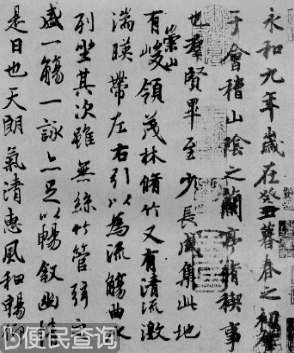 永和九年歲在癸丑暮春之初
于會稽山陰之蘭亭脩稧事
也羣賢畢至少長咸集此地
有崇山峻領茂林脩竹又有清流激
湍暎帶左右引以為流觴曲水
列坐其次雖無絲竹管弦之
盛一觴一詠亦足以暢敘幽情
是日也天朗氣清惠風和暢
便民查询